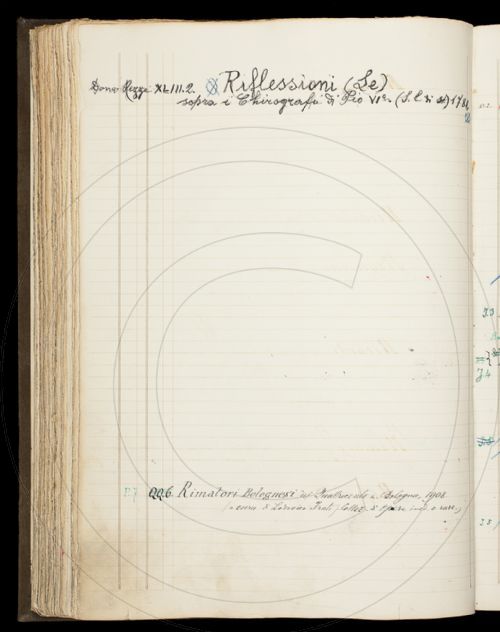 Dono Pizzi XLIII.2. Riflessioni (Le)
sopra i Chirografi di Pio VIº. (S. l. di st) 1781
P.7 QQ6 Rimatori Bolognesi del Quattrocento. Bologna, 1908
(a cura di Lodovico Frati) Collez. d'Opere ined. o rare.)